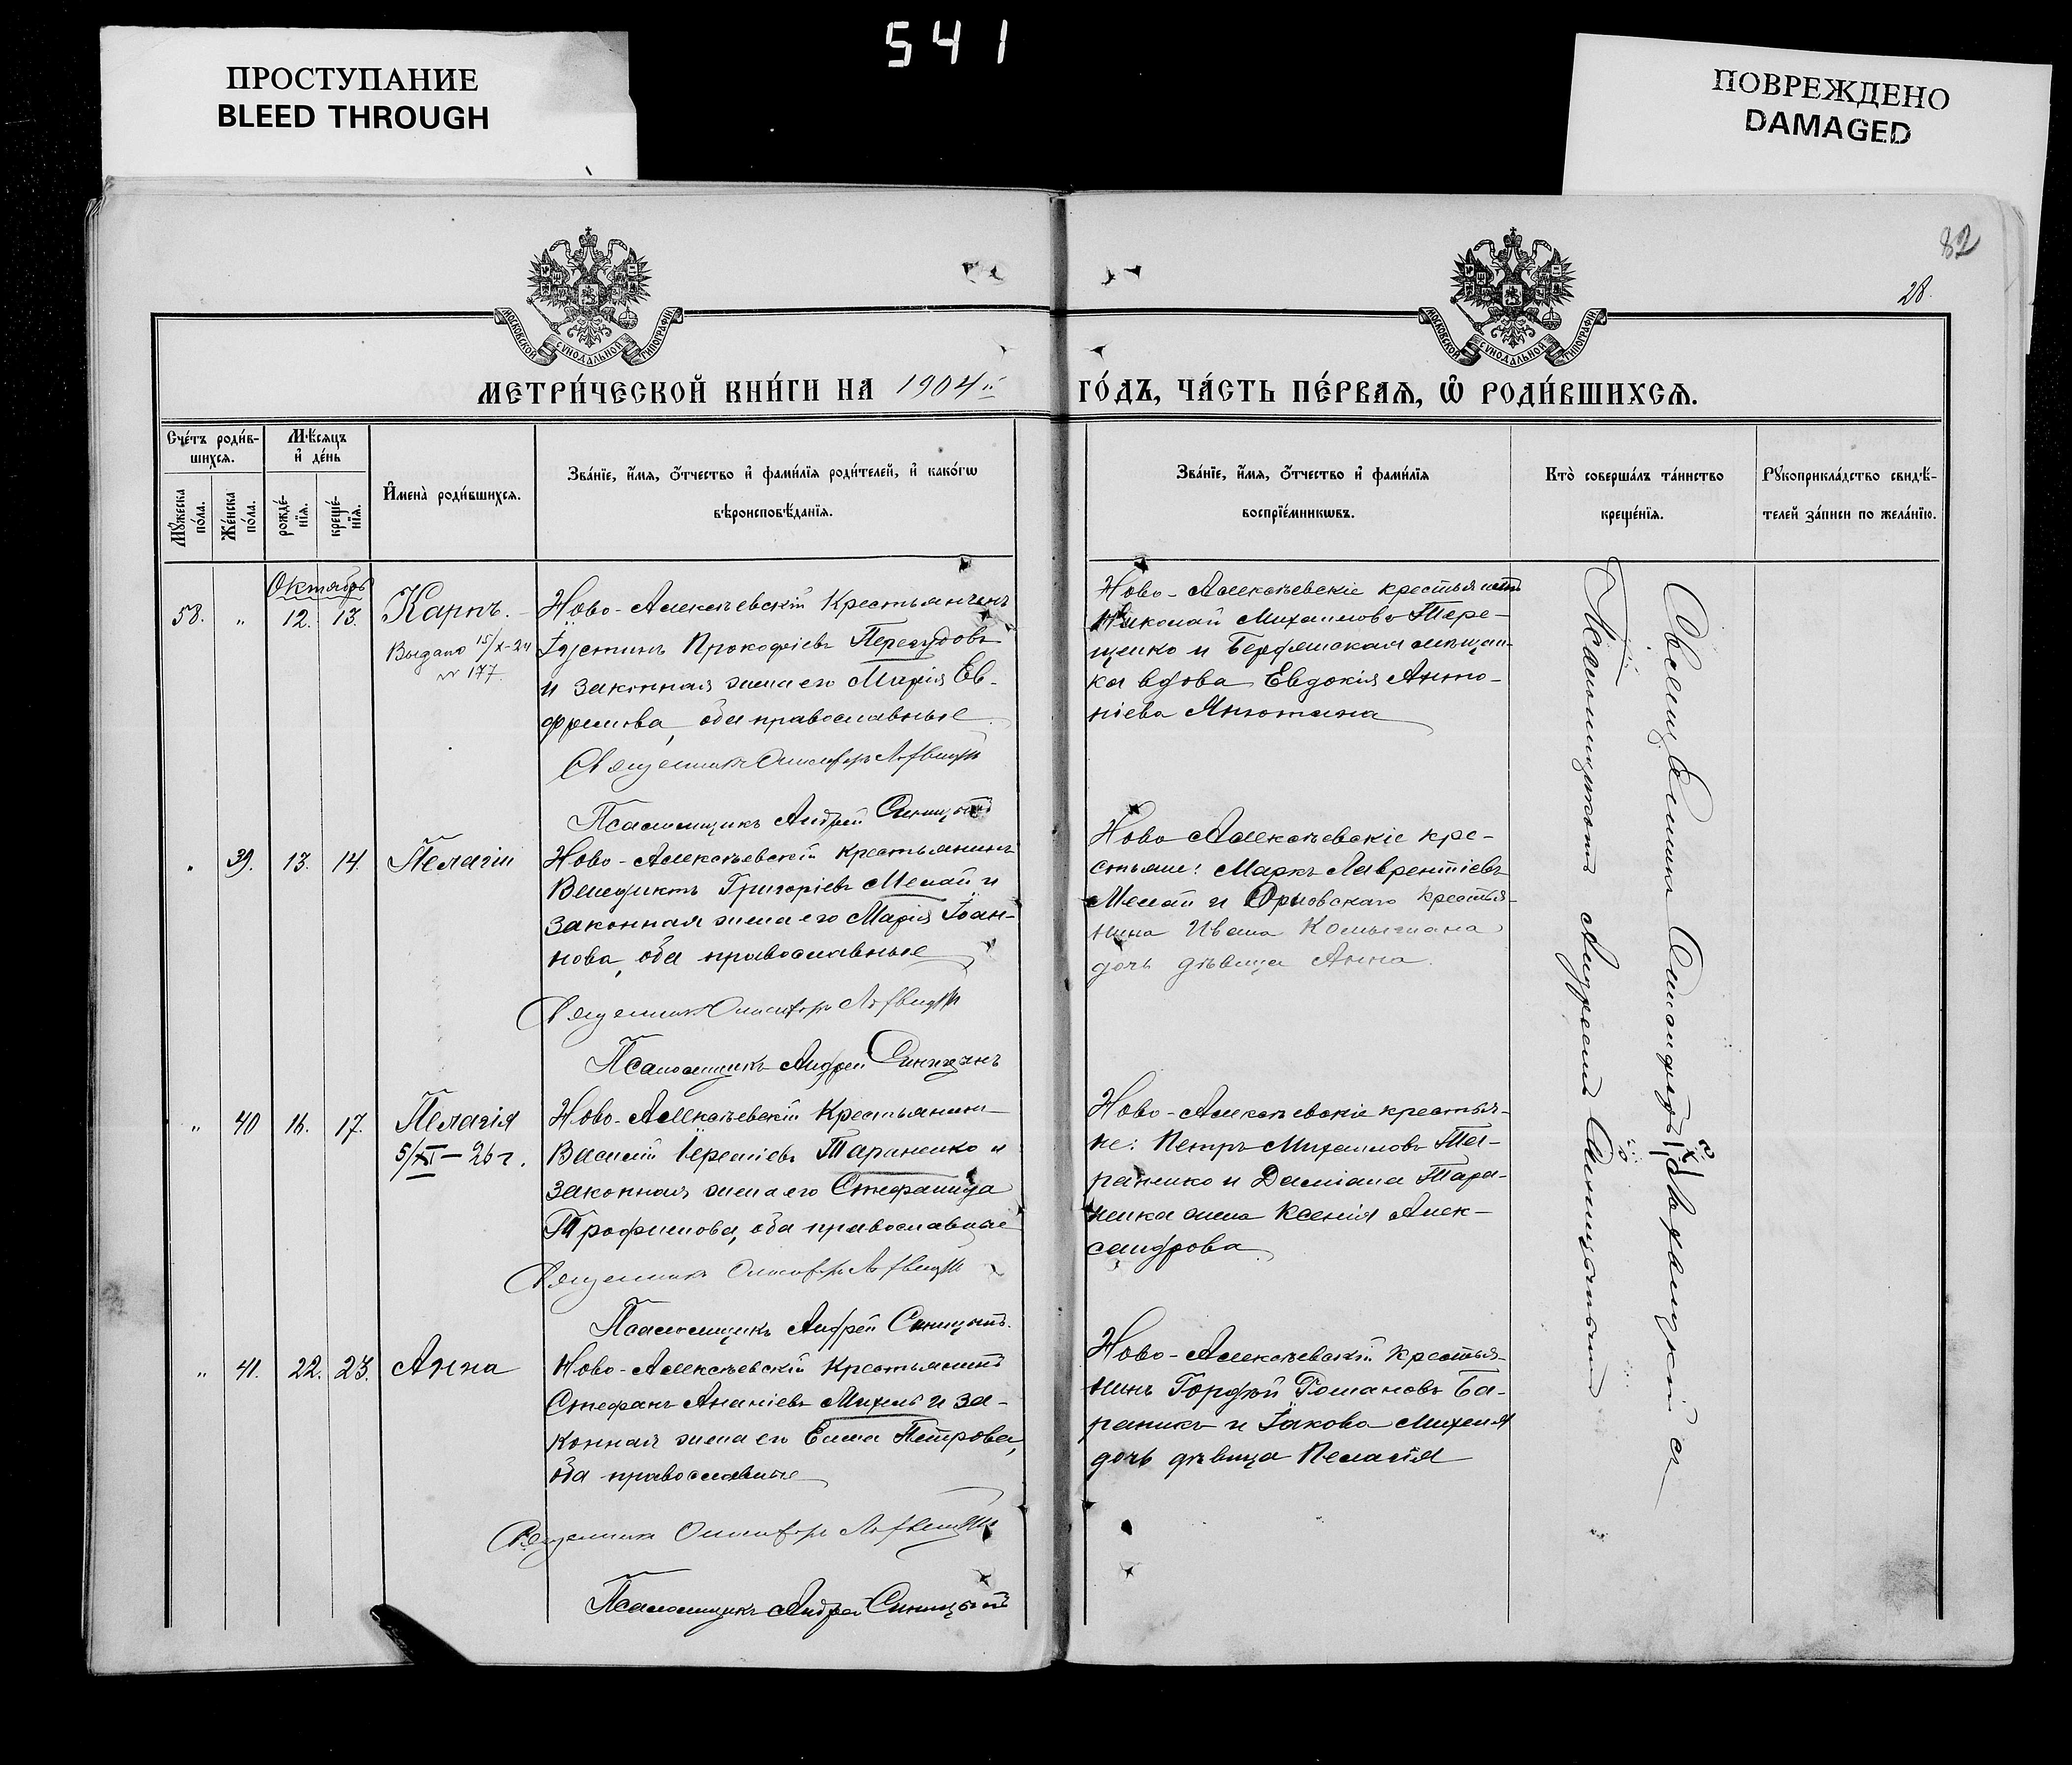 541
ПРОСТУПАНИЕ
BLEED THROUGH
ПОВРЕЖДЕНО
DAMAGED
82
28.
МОСКОВСКОЙ СѴНОДАЛЬНОЙ ТИПОГРАФІИ
МОСКОВСКОЙ СѴНОДАЛЬНОЙ ТИПОГРАФІИ
МЕТРИ́ЧЕСКОЙ КНИ́ГИ НА 1904 й
ГО́ДЪ, ЧА́СТЬ ПЕ́РВАѦ, Ѽ РОДИ́ВШИХСѦ.
Сче́тъ роди́в-
шихся.
Мꙋ́жеска по́ла.
Же́нска по́ла.
Мѣ́сяцъ
и҆ де́нь
рожде́-
нїя.
креще́-
нїя.
И҆мена̀ роди́вшихся.
Зва́нїе, и҆́мя, ѻ҆́тчество и҆ фами́лїя роди́телей, и҆ како́гѡ
вѣроисповѣ́данїя.
Зва́нїе, и҆́мя, ѻ҆́тчество и҆ фами́лїя
воспрїе́мникѡвъ.
Кто̀ соверша́лъ та́инство
креще́нїя.
Рꙋкоприкла́дство свидѣ́-
телей за́писи по жела́нїю.
Октябрь
58. " 12. 13. Карпъ.
Выдано 15/X-24
№ 177.
Ново-Алексѣевскій Крестьянинъ
Іустинъ Прокофіевъ
и законная жена его Марія Ев-
фремова, оба православные
Священникъ
Псаломщикъ Андрей Синицынъ
Ново-Алексѣевскіе крестьянинъ
Николай Михаиловъ Тере-
щенко и Бердянская мѣщан-
ка вдова Евдокія Анто-
ніева
" 39. 13. 14. Пелагія
Ново-Алексѣевскій крестьянинъ
Венедиктъ Григоріевъ Мелай и
законная жена его Марія Іоан-
нова, оба православные
Священникъ
Псаломщикъ Андрей Синицынъ
Ново Алексѣевскіе кре-
стьяне: Маркъ Лаврентіевъ
Мелай и Орловскаго крестья-
нина Ивана
дочь дѣвица Анна.
" 40 16. 17. Пелагія
5/XI — 26 г.
Ново-Алексѣевскій Крестьянин-
Василій Іереміевъ Тараненко и
законная жена его Стефанида
Трофимова, оба православные
Священникъ
Псаломщикъ Андрей Синицынъ.
Ново-Алексѣевскіе крестья-
не: Петръ Михаиловъ Та-
раненко и Даміана Тара-
ненка жена Ксенія Алек-
сандрова.
" 41. 22. 23. Анна
Ново-Алексѣевскій Крестьянинъ
Стефанъ Ананіевъ Михель и за-
конная жена его Елена Петрова,
оба православные
Священникъ
Псаломщикъ Андрей Синицынъ
Ново-Алексѣевскій крестья-
нинъ Гордѣй Романовъ Ба-
раникъ и Іакова Михеля
дочь дѣвица Пелагія
Священникъ
Псаломщикомъ Андреемъ Синицынымъ